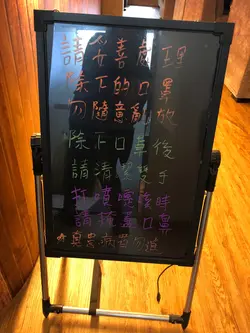 請妥善處理
除下的口罩
勿隨意亂放
除下口罩後
請清洗雙手
打噴嚏時
請掩蓋口鼻